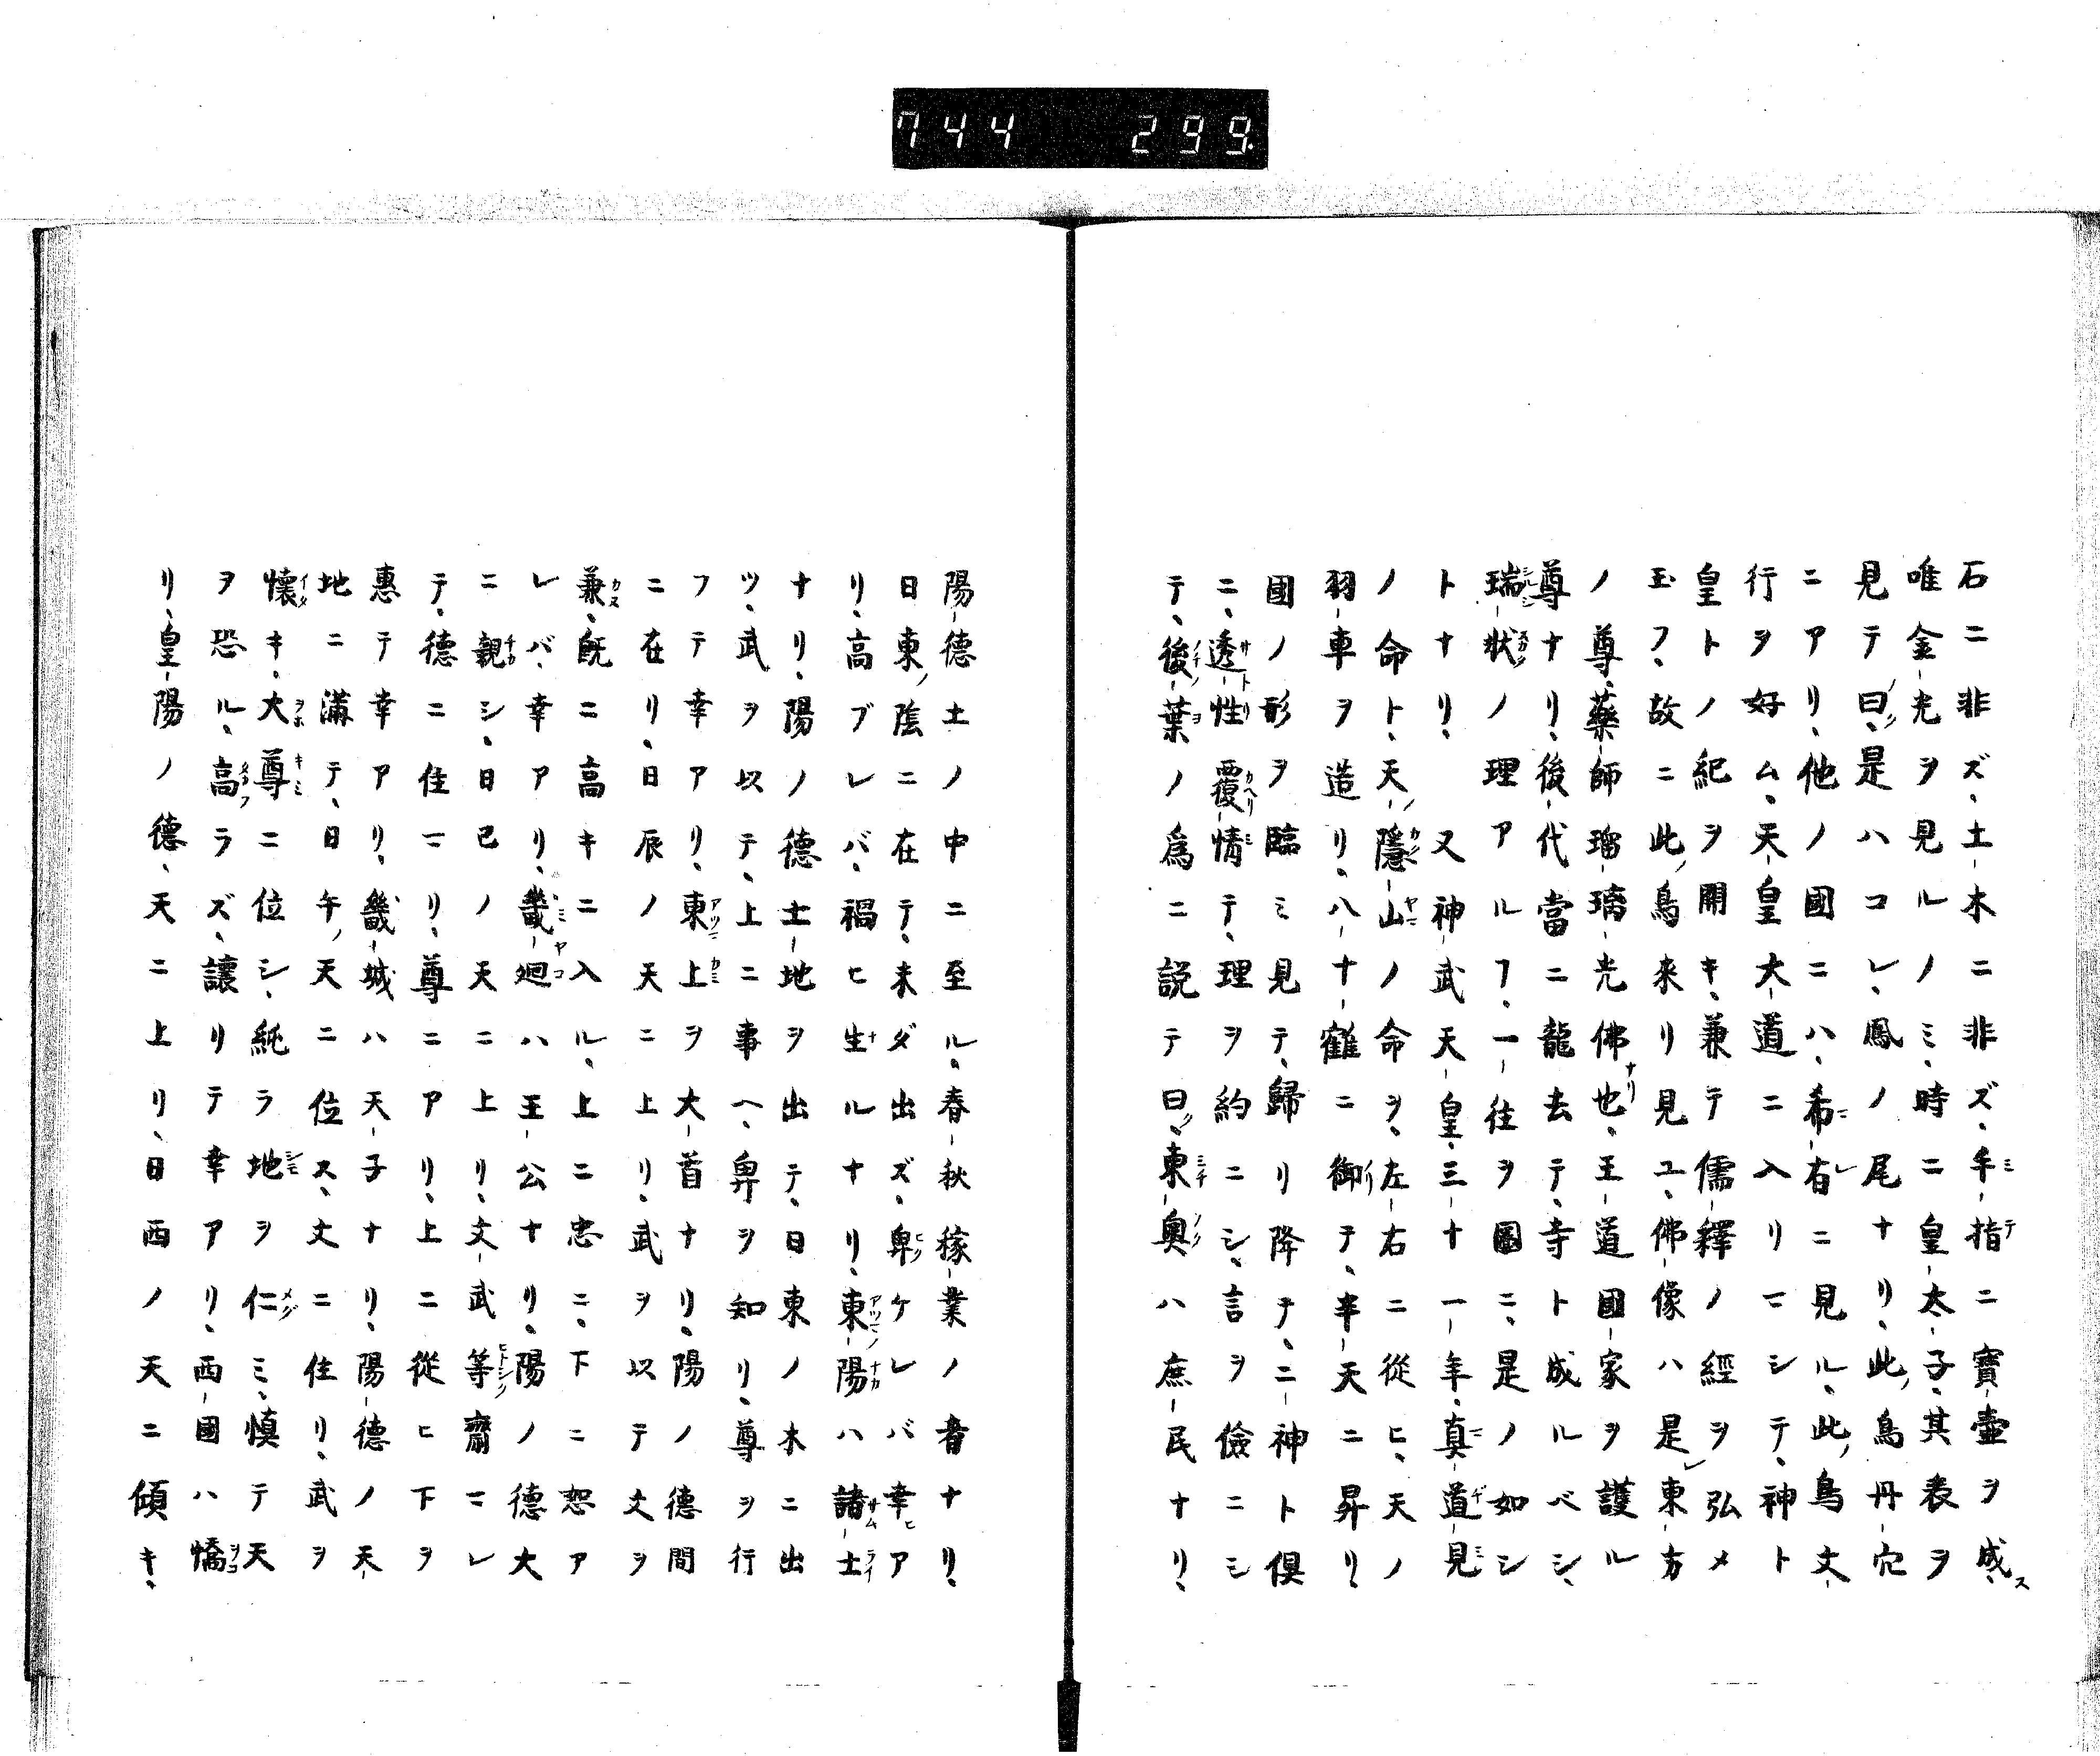 744 299
石ニ非ズ、土木ニ非ズ、手指ニ寶壷ヲ成ス、
唯金光ヲ見ルノミ、時ニ皇太子、其表ヲ
見テ曰、是ハコレ、鳳ノ尾ナリ、此鳥丹穴
ニアリ、他ノ國ニハ、希有ニ見ル、此鳥文
行ヲ好ム、天皇大道ニ入リマシテ、神ト
皇トノ紀ヲ開キ、兼テ儒釋ノ經ヲ弘メ
玉フ、故ニ此鳥来リ見ユ、佛像ハ是東方
ノ尊、藥師瑠璃光佛也、王道國家ヲ護ル
尊ナリ、後代當ニ龍去テ、寺ト成ルベシ、
瑞状ノ理アルフ、一往ヲ圖ニ、是ノ如シ
トナリ、又神武天皇、三十一年、真道見
ノ命ト、天隱山ノ命ヲ、左右ニ從ヒ、天ノ
羽車ヲ造リ、八十鶴ニ御テ、半天ニ昇リ、
國ノ形ヲ臨ミ見テ、歸リ降テ、二神ト倶
ニ、透性覆情テ、理ヲ約ニシ、言ヲ儉ニシ
テ、後葉ノ為ニ説テ曰、東奥ハ庶民ナリ、
陽德土ノ中ニ至ル、春秋稼業ノ者ナリ、
日東陰ニ在テ、未ダ出ズ、卑ケレバ幸ア
リ、高ブレバ、禍ヒ生ルナリ、東陽ハ諸士
ナリ、陽ノ德士地ヲ出テ、日東ノ木ニ出
ツ、武ヲ以テ、上ニ事ヘ、卑ヲ知リ、尊ヲ行
フテ幸アリ、東上ヲ大首ナリ、陽ノ德間
ニ在リ、日辰ノ天ニ上リ、武ヲ以テ文ヲ
兼、既ニ高キニ入ル、上ニ忠ニ、下ニ恕ア
レバ、幸アリ、畿廻ハ王公ナリ、陽ノ德大
ニ親シ、日巳ノ天ニ上リ、文武等齋マレ
テ、德ニ住マリ、尊ニアリ、上ニ從ヒ下ヲ
惠テ幸アリ、畿城ハ天子ナリ、陽德ノ天
地ニ満テ、日午天ニ位ス、文ニ住リ、武ヲ
懐キ、大尊ニ位シ、純ラ地ヲ仁ミ、慎テ天
ヲ恐ル、高ラズ、讓リテ幸アリ、西國ハ憍
リ、皇陽ノ德、天ニ上リ、日西ノ天ニ傾キ、